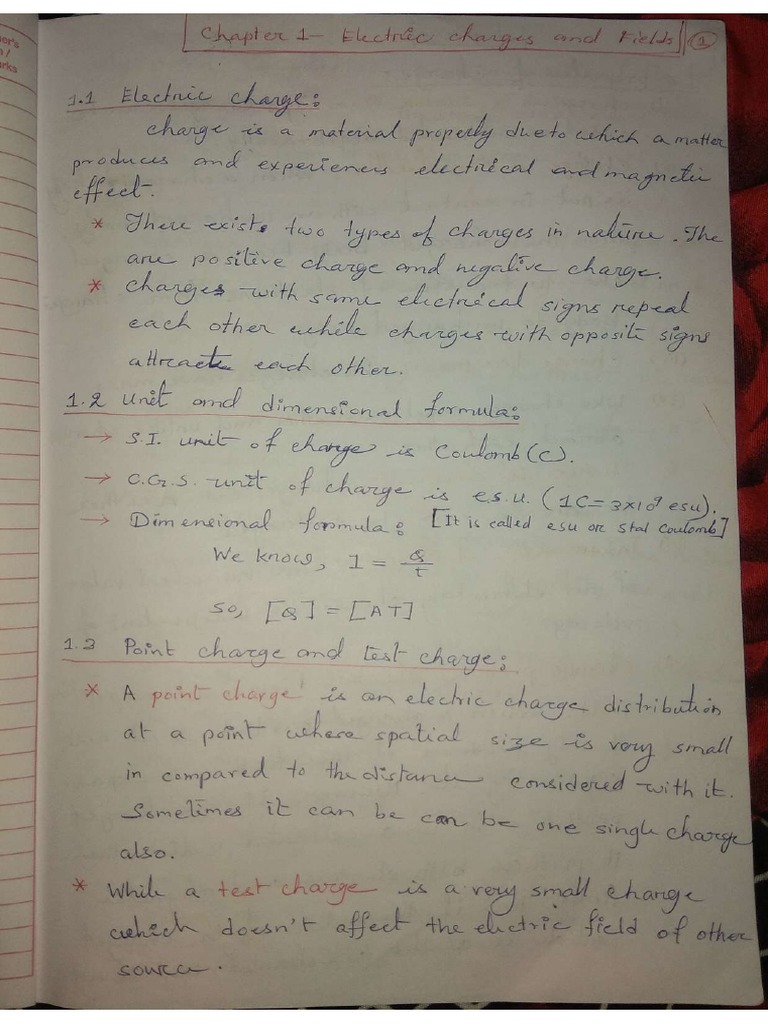 Chapter 1- Electric charges and Fields 1
1.1 Electric charge:
charge is a material property due to which a matter
produces and experiences electrical and magnetic
effect.
* There exists two types of charges in nature. The
are positive charge and negative charge.
* charges with same electrical signs repeal
each other while charges with opposite signs
attract each other.
1.2 Unit and dimensional formula:
→ S.I. unit of charge is Coulomb (C).
→ C.G.S. unit of charge is e.s.u. (1C = 3×10⁹ esu).
→ Dimensional formula: [It is called esu or stat Coulomb]
We know, I = Q/t
so, [Q] = [AT]
1.3 Point charge and test charge:
* A point charge is an electric charge distribution
at a point whose spatial size is very small
in compared to the distance considered with it.
Sometimes it can be can be one single charge
also.
* While a test charge is a very small charge
which doesn't affect the electric field of other
source.